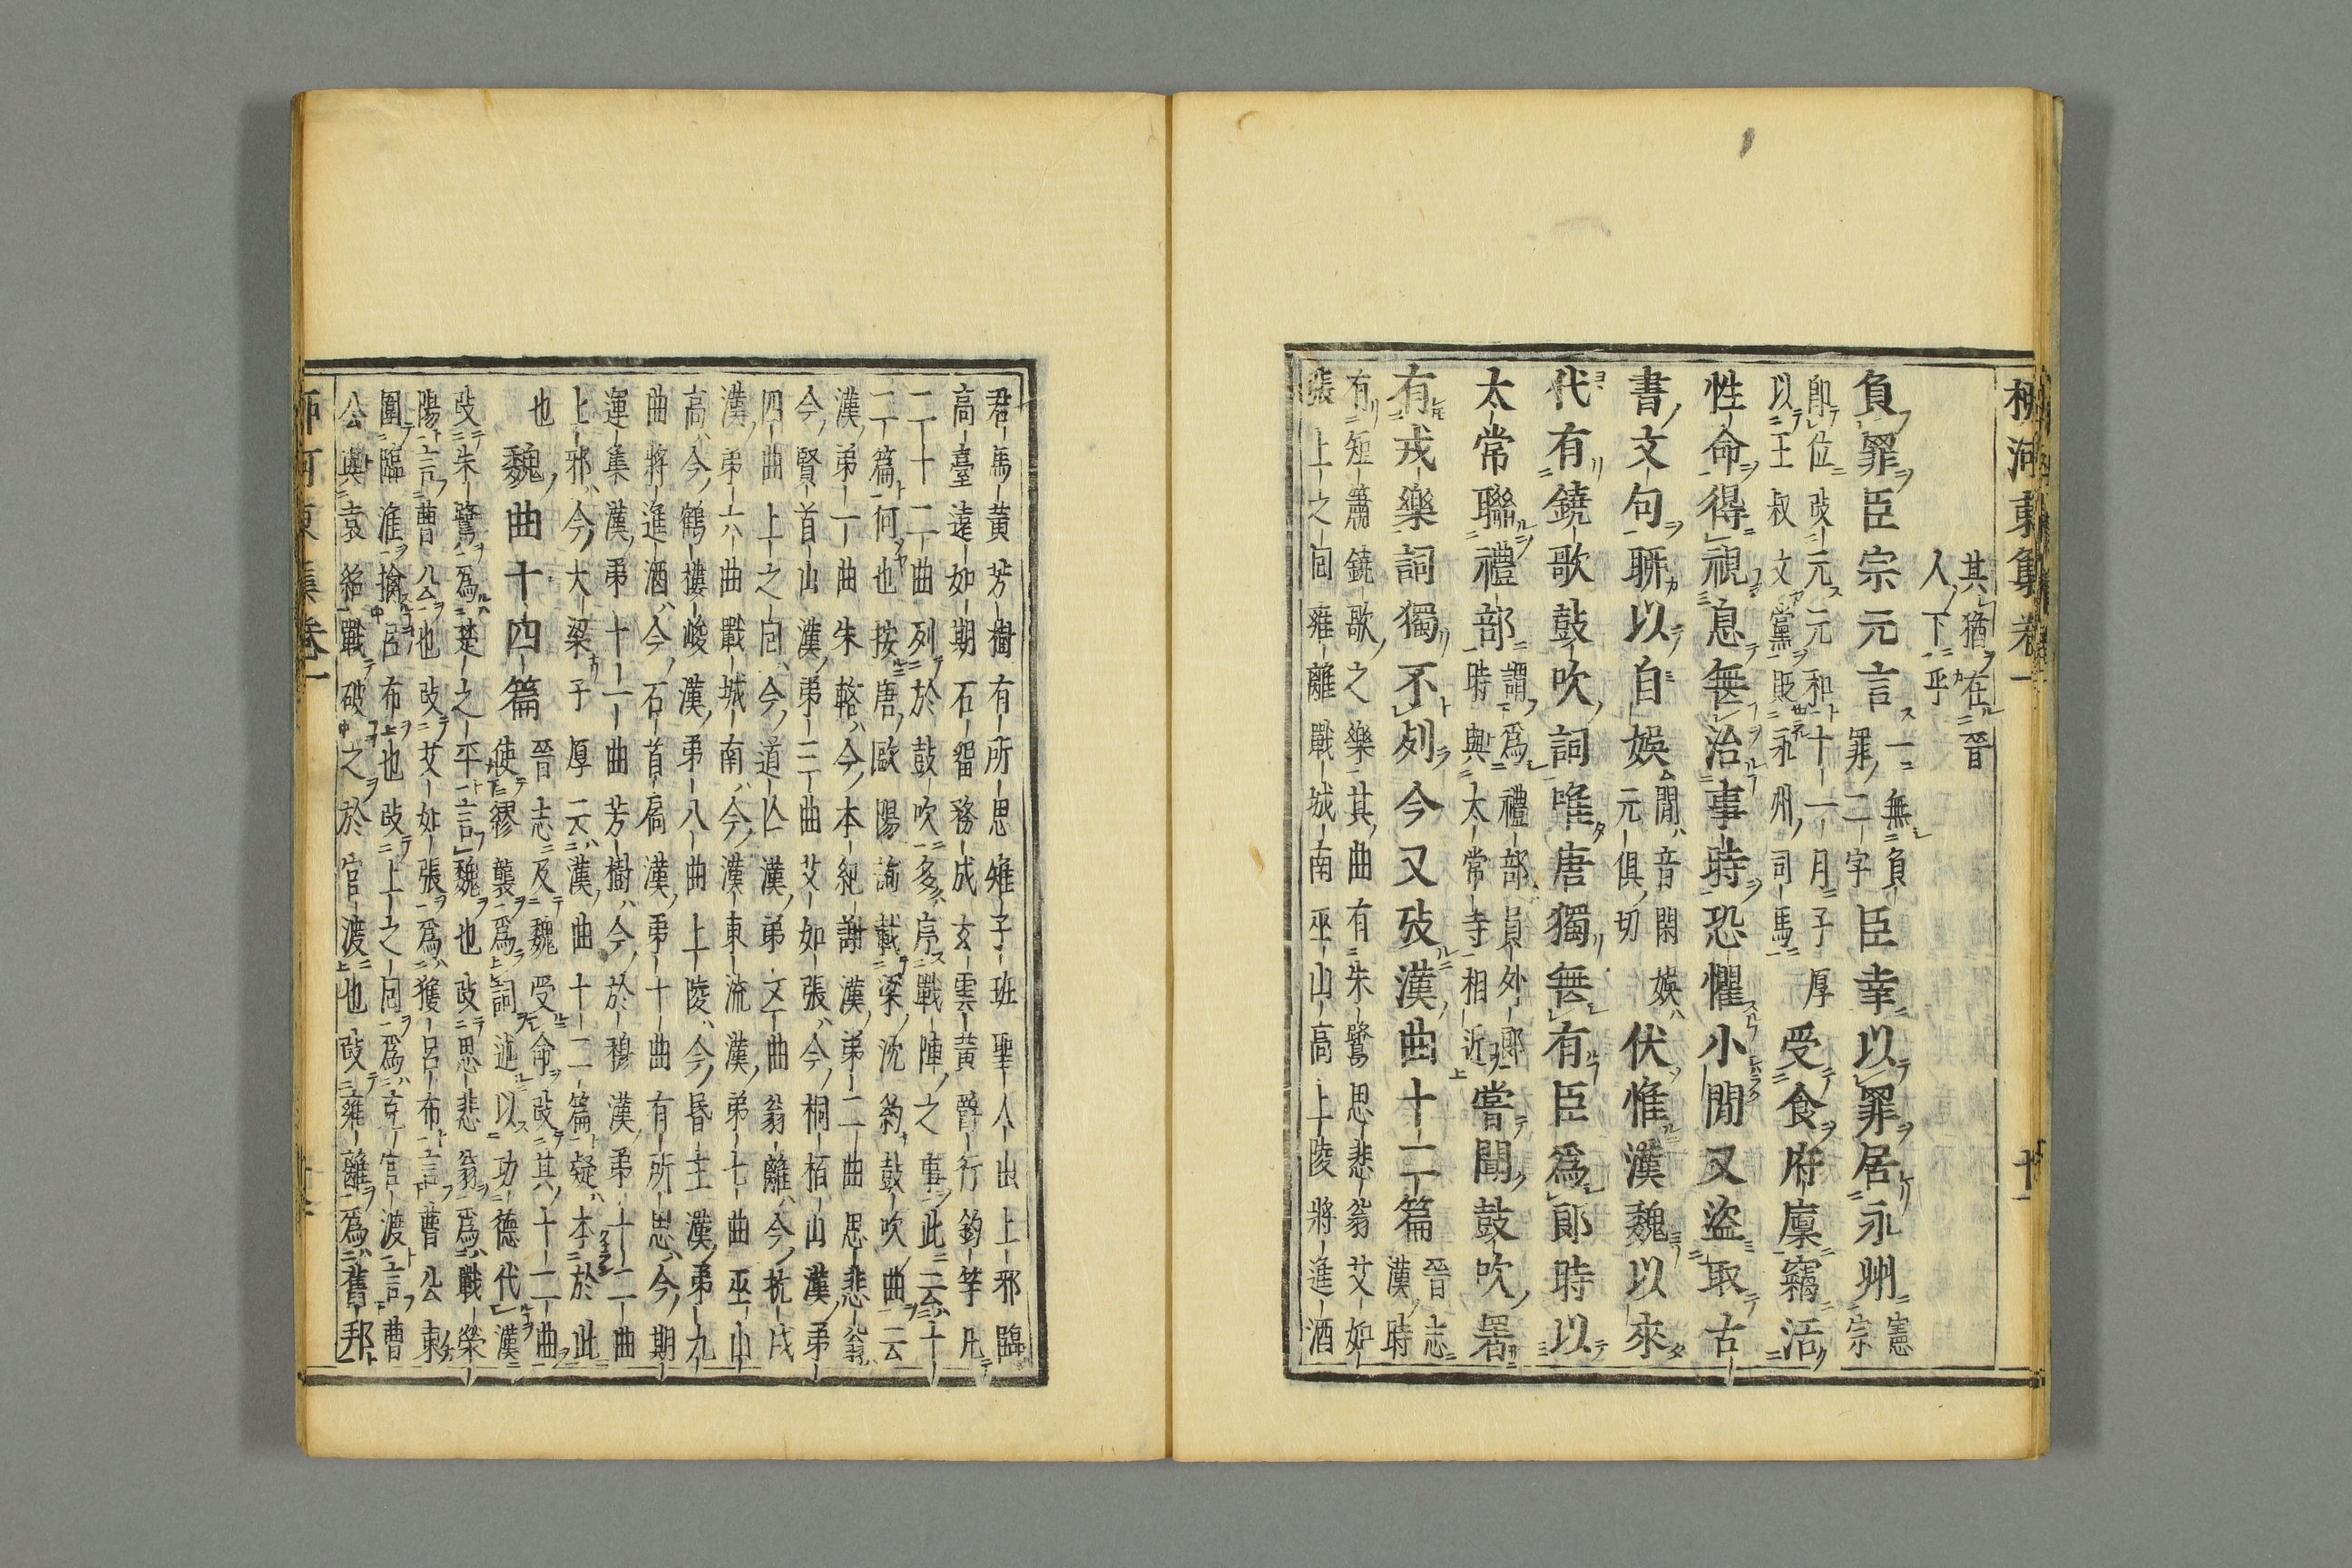 柳河東集卷一 十一
其猶在晉
人下乎
負罪臣宗元言一無負罪二字臣幸以罪居永州憲宗
即位攺元元和十一月子厚
以王叔文黨貶永州司馬受食府廩竊活
性命得視息無治事時恐懼小閒又盜取古
書文句聊以自娛閒音閑娛元俱切伏惟漢魏以來
代有鐃歌鼓吹詞唯唐獨無有臣爲郎時以
太常聯禮部謂爲禮部員外郎時與太常寺相近嘗聞鼓吹署
有戎樂詞獨不列今又攷漢曲十二篇晉志漢時
有短簫鐃歌之樂其曲有朱鷺思悲翁艾如
張上之回雍離戰城南巫山高上陵將進酒
君馬黃芳樹有所思雉子班聖人出上邪臨
高臺遠如期石留務成玄雲黃爵行釣竿凡
二十二曲列於鼓吹多序戰陣之事此云十
二篇何也按唐歐陽詢載梁沈約鼓吹曲云
漢第一曲朱鷺今本紀謝漢第二曲思悲翁
今賢首山漢第三曲艾如張今桐栢山漢第
四曲上之回今道亾漢第五曲翁離今抗戍
漢第六曲戰城南今漢東流漢第七曲巫山
高今鶴樓峻漢第八曲上陵今昏主漢第九
曲將進酒今石首局漢第十曲有所思今期
運集漢第十一曲芳樹今於穆漢第十二曲
上邪今大梁子厚云漢曲十二篇疑本於此
也
魏曲十四篇晉志及魏受命攺其十二曲
使繆襲爲詞述以功德代漢
攺朱鷺爲楚之平言魏也攺思悲翁爲戰滎
陽言曹公也攺艾如張爲獲呂布言曹公東
圍臨淮擒呂布也攺上之回爲克官渡言曹
公與袁紹戰破之於官渡也攺雍離爲舊邦
河東集卷一